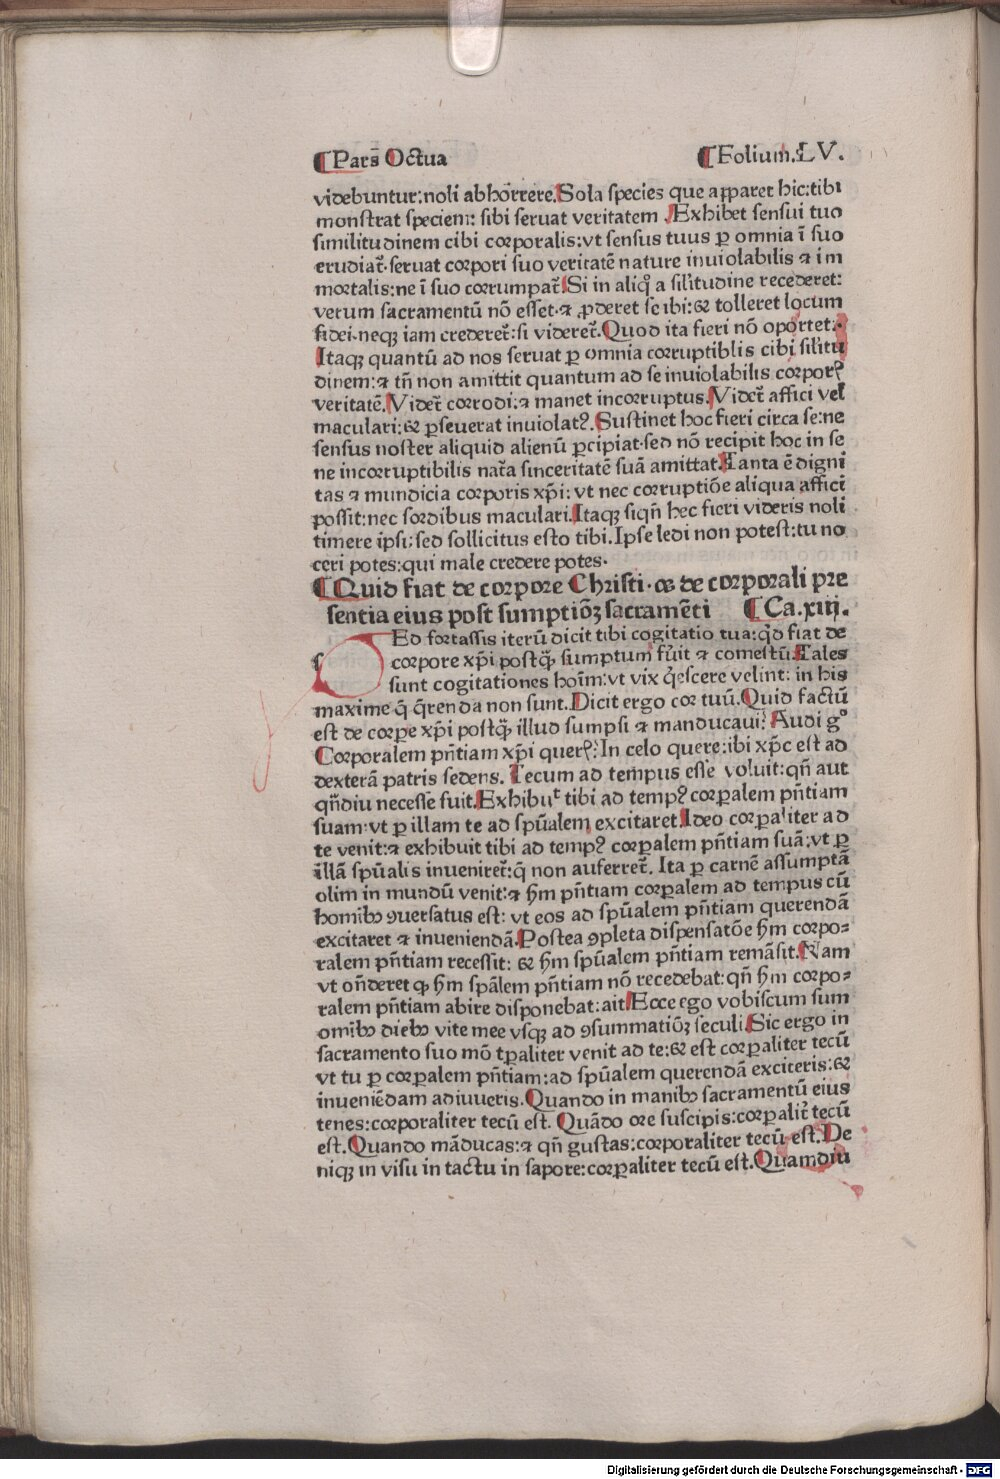 ¶Pars̄ Octua ¶Folium.LV.
videbuntur:noli abhorrere.Sola species que apparet hic:tibi
monstrat speciem: sibi seruat veritatem .Exhibet sensui tuo
similitudinem cibi corporalis:vt sensus tuus ꝑ omnia ī suo
erudiat᷑.seruat corpori suo veritatē nature inuiolabilis ⁊ im
mortalis:ne ī suo corrumpat᷑.Si in aliqͦ a sil'itudine recederet:
verum sacramentū nō esset.⁊ ꝓderet se ibi:⁊ tolleret locum
fidei.neqꝫ iam crederet᷑:si videret᷑.Quod ita fieri nō oportet.
Itaqꝫ quantū ad nos seruat ꝑ omnia corruptiblis cibi sil'itu
dinem:⁊ tn̄ non amittit quantum ad se inuiolabilis corporꝭ
veritatē.Videt᷑ corrodi:⁊ manet incorruptus.Videt᷑ affici vel
maculari:⁊ ꝑseuerat inuiolatꝰ.Sustinet hoc fieri circa se:ne
sensus noster aliquid alienū ꝑcipiat.sed nō recipit hoc in se
ne incorruptibilis nat᷑a sinceritatē suā amittat.Tanta ē digni
tas ⁊ mundicia corporis xp̄i: vt nec corruptiōe aliqua affici
possit:nec sordibus maculari.Itaqꝫ siqn̄ hec fieri videris noli
timere ipsi:sed sollicitus esto tibi.Ipse ledi non potest:tu no
ceri potes:qui male credere potes.
¶Quid fiat de corpore Christi.⁊ de corporali pre
sentia eius post sumptiōꝫ sacramēti ¶Ca.xiij.
s Ed fortassis iterū dicit tibi cogitatio tua:qd̄ fiat de
corpore xp̄i postꝙ̄ sumptum fu̓it ⁊ comestū.Tales
sunt cogitationes hoīm:vt vix q̇escere velint: in his
maxime q̄ q̄renda non sunt.Dicit ergo cor tuū.Quid factū
est de corꝑe xp̄i postꝙ̄ illud sumpsi ⁊ manducaui? Audi gͦ
Corporalem pn̄tiam xp̄i querꝭ?In celo quere:ibi xp̄c est ad
dexterā patris sedens. Tecum ad tempus esse voluit:qn̄ aut
qn̄diu necesse fuit.Exhibuᵗ tibi ad tempꝰ corꝑalem pn̄tiam
suam:vt ꝑ illam te ad spūalem excitaret.Ideo corꝑaliter ad
te venit:⁊ exhibuit tibi ad tempꝰ corꝑalem pn̄tiam suā:vt ꝑ
illā spūalis inueniret᷑:q̄ non auferret᷑. Ita ꝑ carnē assumptā
olim in mundū venit:⁊ ẜm pn̄tiam corꝑalem ad tempus cū
homībꝰ ꝯuersatus est: vt eos ad spūalem pn̄tiam querendā
excitaret ⁊ inueniendā.Postea ꝯpleta dispensatōe ẜm corpo=
ralem pn̄tiam recessit: ⁊ ẜm spūalem pn̄tiam remāsit.Nam
vt on̄deret ꝙ ẜm spālem pn̄tiam nō recedebat:qn̄ ẜm corpo=
ralem pn̄tiam abire disponebat:ait.Ecce ego vobiscum sum
omībꝰ diebꝰ vite mee vsqꝫ ad ꝯsummatiōꝫ seculi.Sic ergo in
sacramento suo mō tꝑaliter venit ad te:⁊ est corꝑaliter tecū
vt tu ꝑ corꝑalem pn̄tiam:ad spūalem querendā exciteris:⁊
inueniēdam adiuueris.Quando in manibꝰ sacramentū eius
tenes:corporaliter tecū est. Quādo ore suscipis:corꝑalit᷑ tecū
est.Quando māducas:⁊ qn̄ gustas:corporaliter tecū est.De
niqꝫ in visu in tactu in sapore:corꝑaliter tecū est.Quamdiu
Digitalisierung gefördert durch die Deutsche Forschungsgemeinschaft - DFG